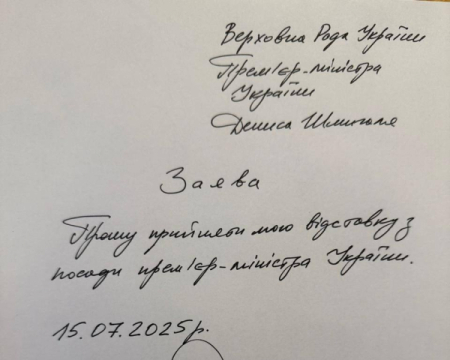 Верховна Рада України
Прем'єр-міністра
України
Дениса Шмигаля
Заява
Прошу прийняти мою відставку з
посади прем'єр-міністра України.
15.07.2025р.